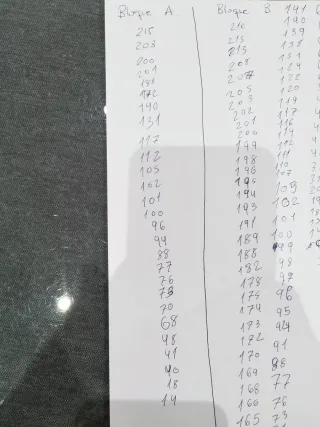 Bloque A
215
203
200
201
191
172
140
131
117
112
105
102
101
100
96
94
88
77
76
73
70
68
48
41
40
18
14
Bloque B
216
215
213
208
207
205
203
202
201
200
199
198
196
195
194
193
191
189
188
182
178
175
174
173
172
170
169
168
166
165
141
140
139
138
131
124
122
120
119
117
116
114
112
111
110
107
105
102
101
100
99
98
97
96
95
94
91
88
77
76
73